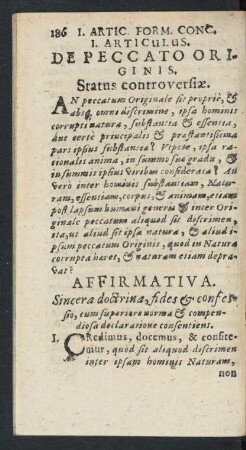 186 I. ARTIC. FORM. CONC.
I. ARTICULUS.
DE PECCATO ORI-
GINIS.
Status controversiæ.
AN peccatum Originale sit propriè, &
absq; omni discrimine, ipsa hominis
corrupti natura, substantia & essentia,
aut certè principalis & præstantissima
pars ipsius substantiæ? Vtpote, ipsa ra-
tionalis anima, in summo suo gradu, &
in summis ipsius viribus considerata? An
verò inter hominis substantiam, Natu-
ram, essentiam, corpus, & animam, etiam
post lapsum humani generis & inter Ori-
ginale peccatum aliquod sit discrimen,
ita, ut aliud sit ipsa natura, & aliud i-
psum peccatum Originis, quod in Natura
corrupta hæret, & naturam etiam depra-
vat?
AFFIRMATIVA.
Sincera doctrina, fides & confes-
sio, cum superiore norma & compen-
diosa declaratione consentiens.
I. CRedimus, docemus, & confite-
mur, quòd sit aliquod discrimen
inter ipsam hominis Naturam,
non